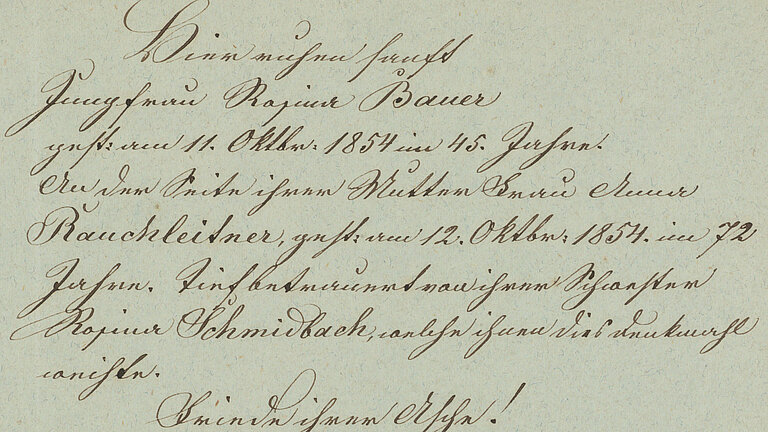 Hier ruhen sanft
Jungfrau Rosina Bauer
gest: am 11. Oktbr: 1854 im 45. Jahre.
An der Seite ihrer Mutter Frau Anna
Rauchleitner, gest: am 12. Oktbr: 1854. im 72
Jahre. Tief betrauert von ihrer Schwester
Rosina Schmidbach, welche ihnen dies Denkmahl
weihte.
Friede ihrer Asche!